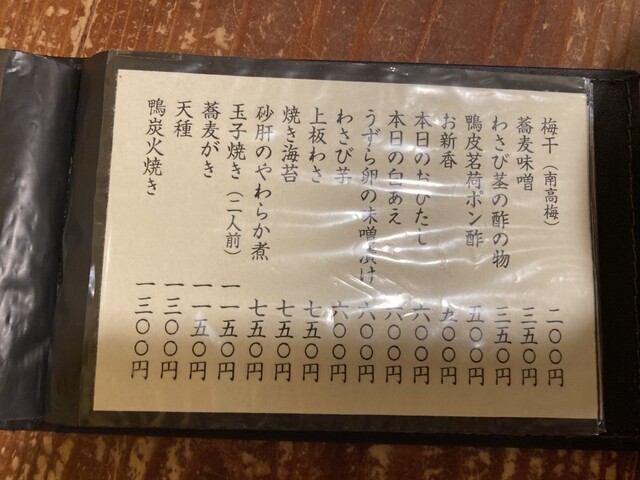 梅干（南高梅） 二〇〇円
蕎麦味噌 三五〇円
わさび茎の酢の物 三五〇円
鴨皮茗荷ポン酢 五〇〇円
お新香 五〇〇円
本日のおひたし 六〇〇円
本日の白あえ 六〇〇円
うずら卵の味噌漬け 六〇〇円
わさび芋 六〇〇円
上板わさ 七五〇円
焼き海苔 七五〇円
砂肝のやわらか煮 七五〇円
玉子焼き（二人前） 一一五〇円
蕎麦がき 一一五〇円
天種 一三〇〇円
鴨炭火焼き 一三〇〇円